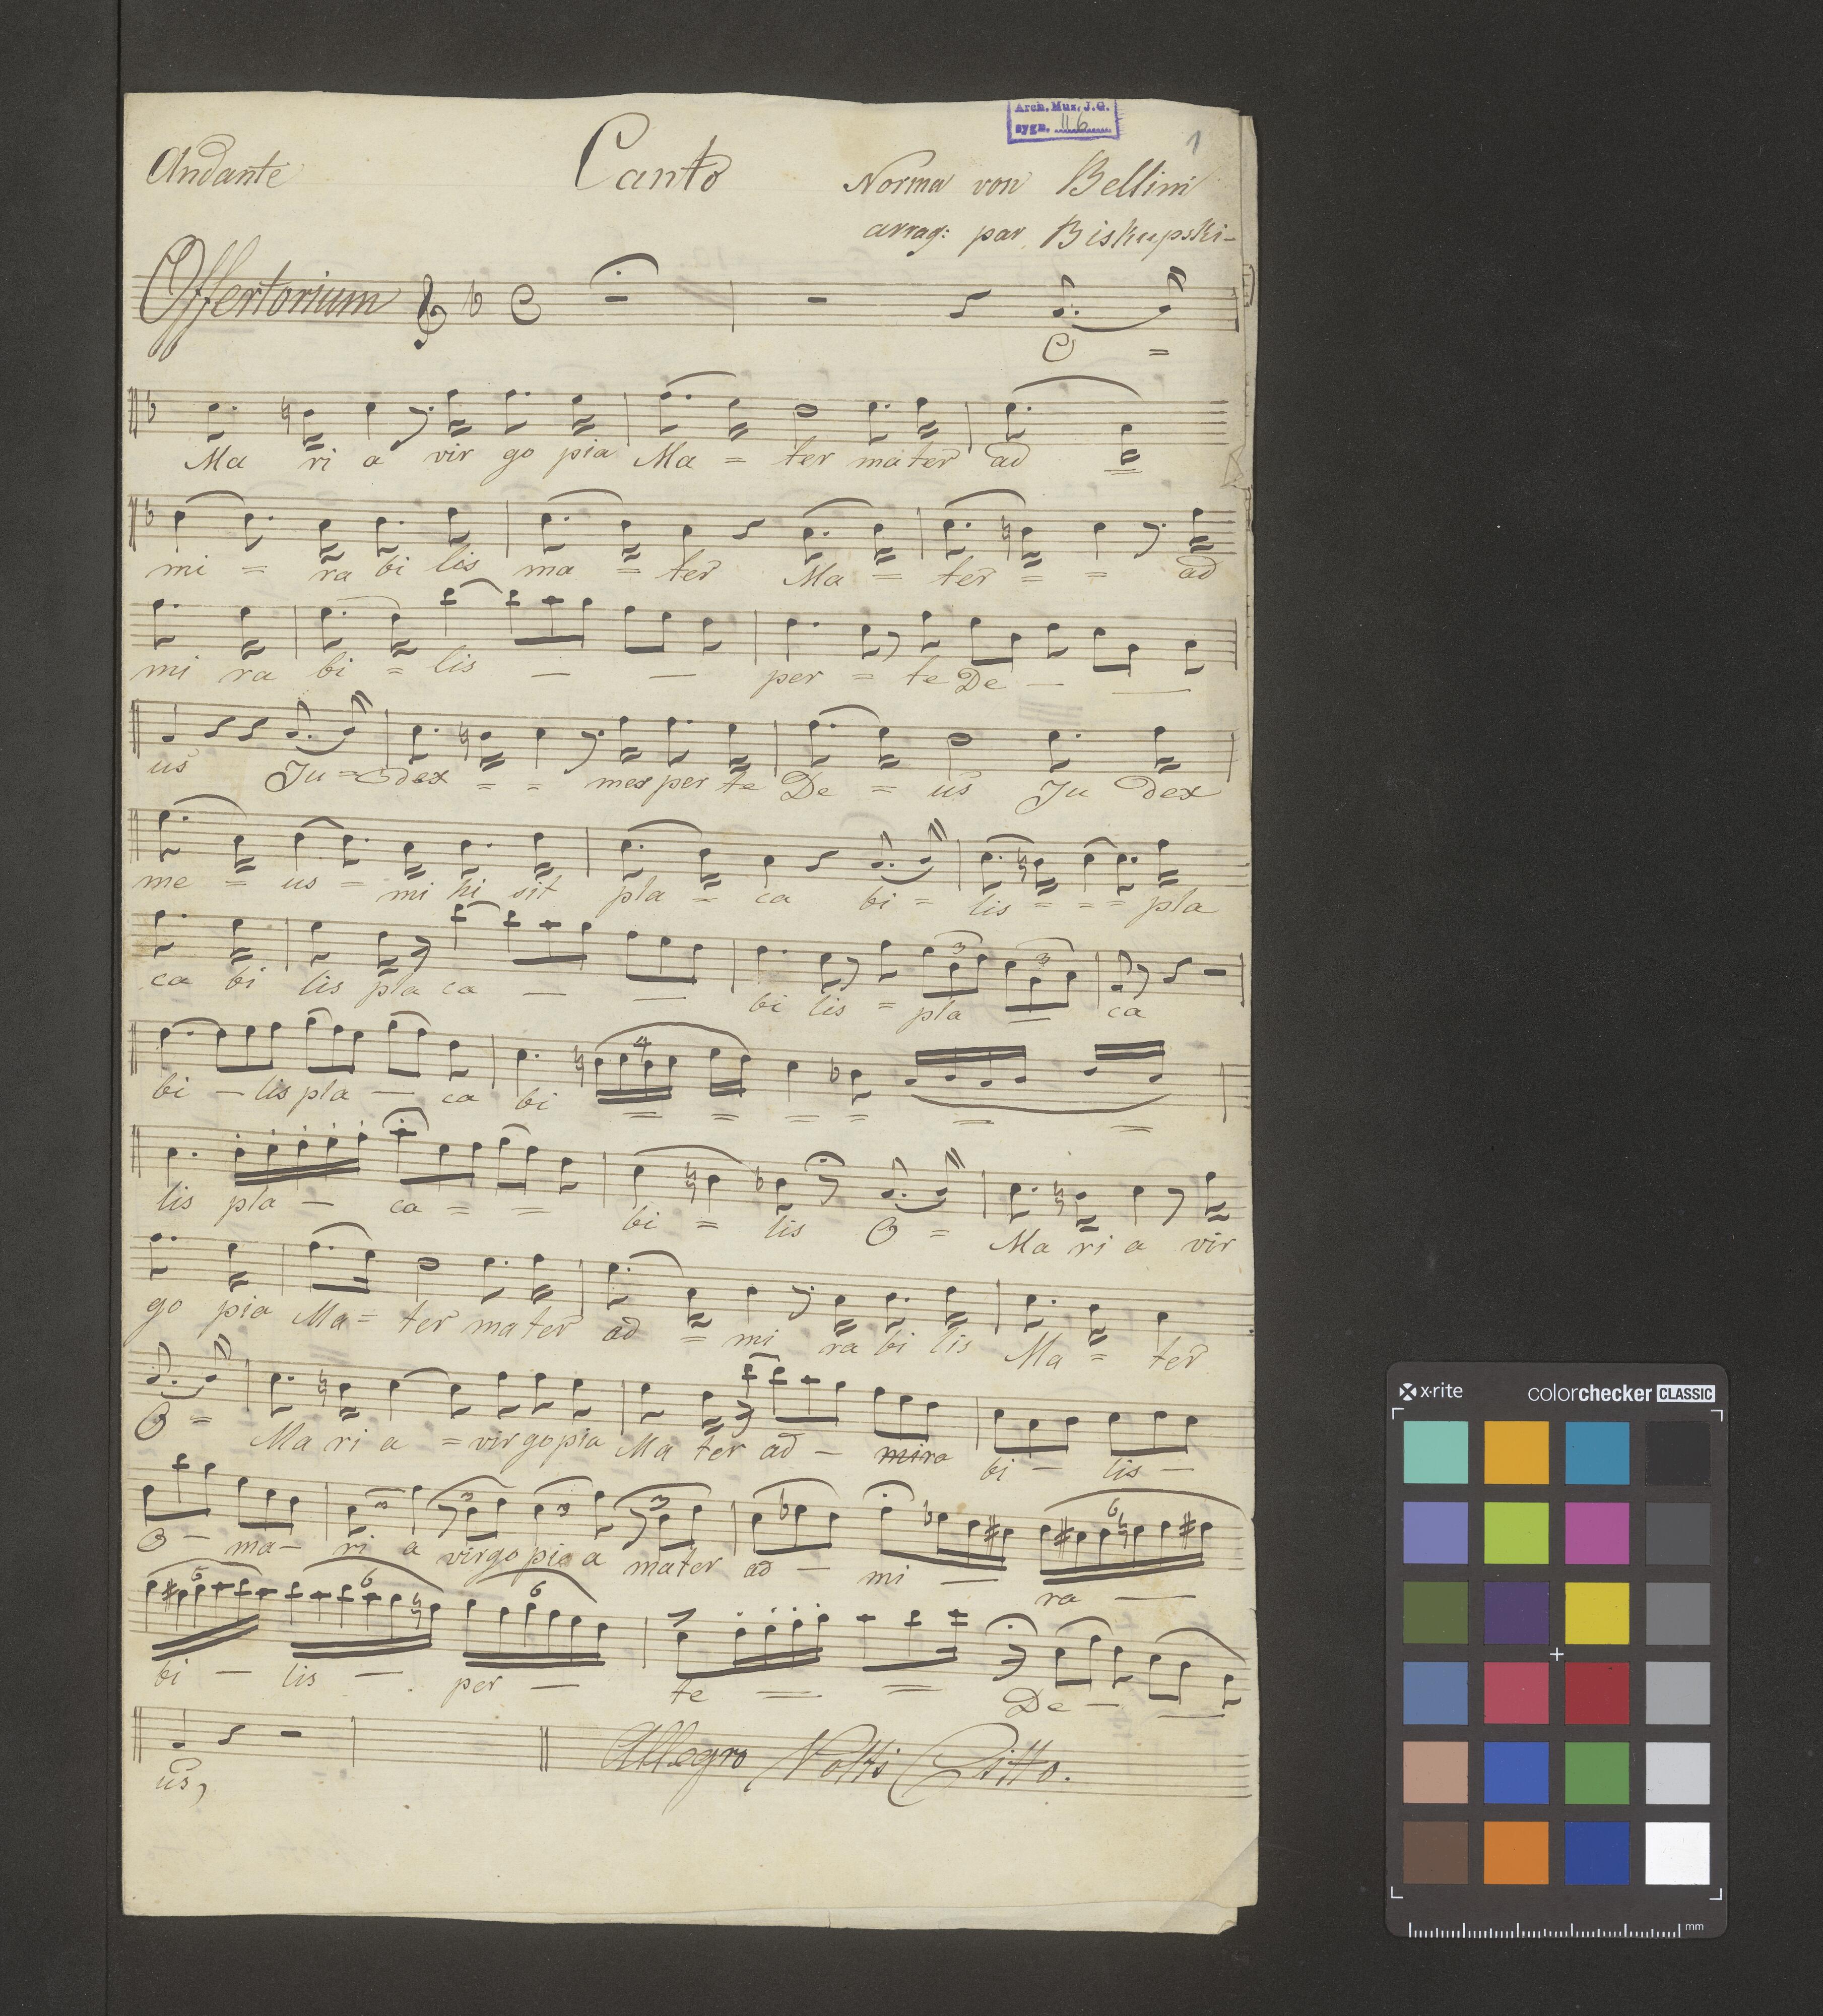 Arch. Muz. J.G.
sygn. 116
1
Andante Canto Norma von Bellini
arrag: par Biskupski-
Offertorium
O =
Ma ri a vir go pia Ma = ter mater ad =
mi = ra bi lis ma = ter Ma = ter = = ad
mi ra bi = lis — — per = te De — —
us Ju = dex = = mex per te De = us Ju dex
me = us = mi hi sit pla = ca bi = lis = = = pla
ca bi lis pla ca — — bi lis = pla — ca
3 3
bi — lis pla — ca bi = = = = = =
4
lis pla — ca = = bi = lis O = Ma ri a vir
go pia Ma = ter mater ad = mi ra bi lis Ma = ter
O = Ma ri a = virgo pia Ma ter ad — mira bi — lis —
O — ma — ri a virgo pie a mater ad — mi — ra —
3 3 3 3 6
bi — lis — per — te = = De — —
6 6 6
us,
Allegro Volti Citto.
x·rite colorchecker CLASSIC
mm